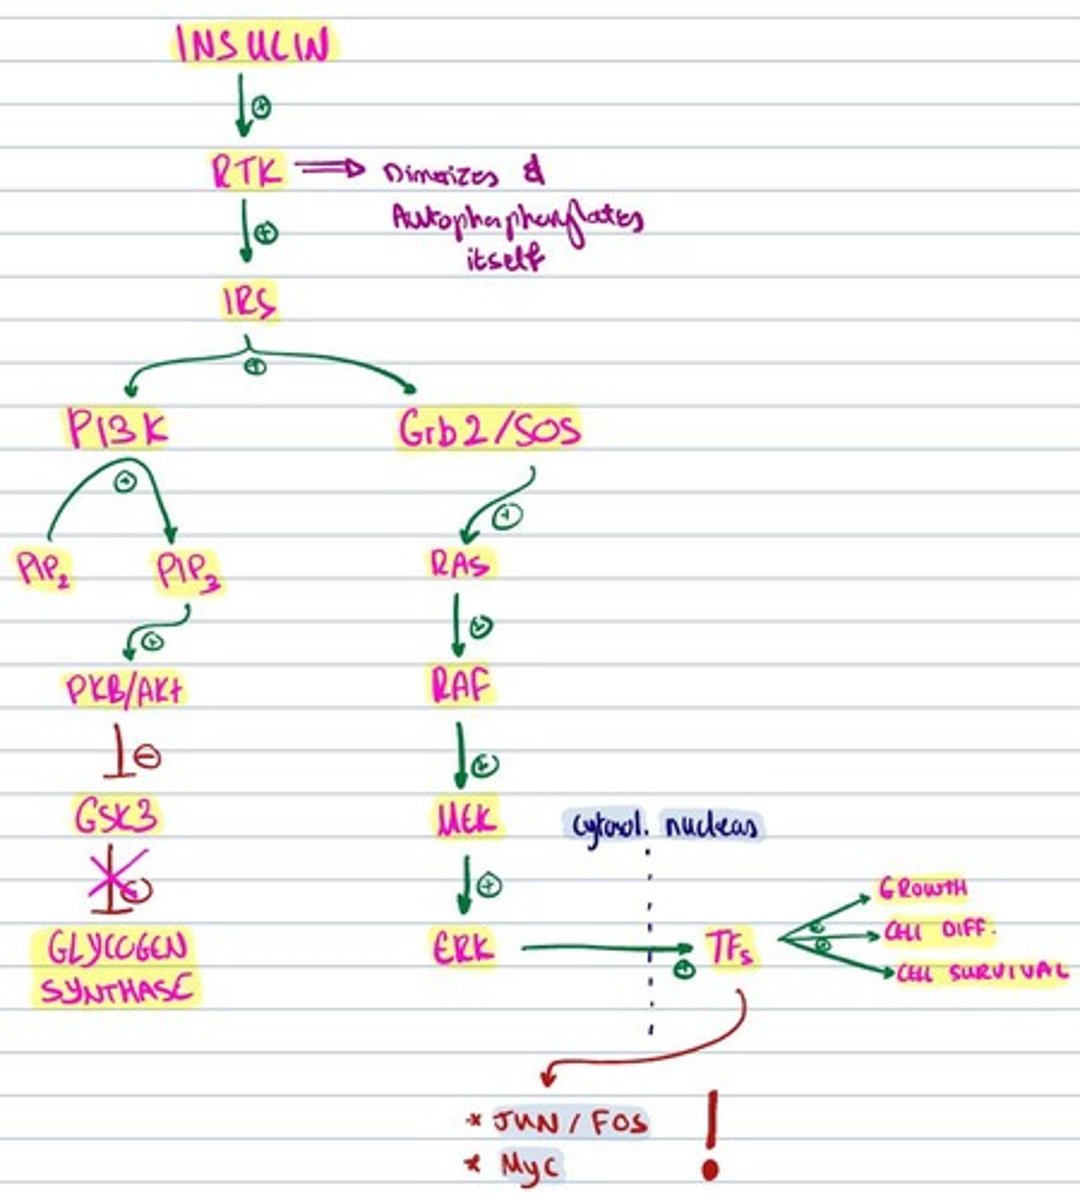 INSULIN
RTK ⇒ Dimerizes &
Autophosphorylates
itself
IRS
PI3K
Grb2/SOS
PIP2
PIP3
RAS
PKB/AKt
RAF
GSK3
MEK
cytosol. nucleus
GLYCOGEN
SYNTHASE
ERK
TFs
GROWTH
CELL DIFF.
CELL SURVIVAL
* JUN / FOS
* Myc
!